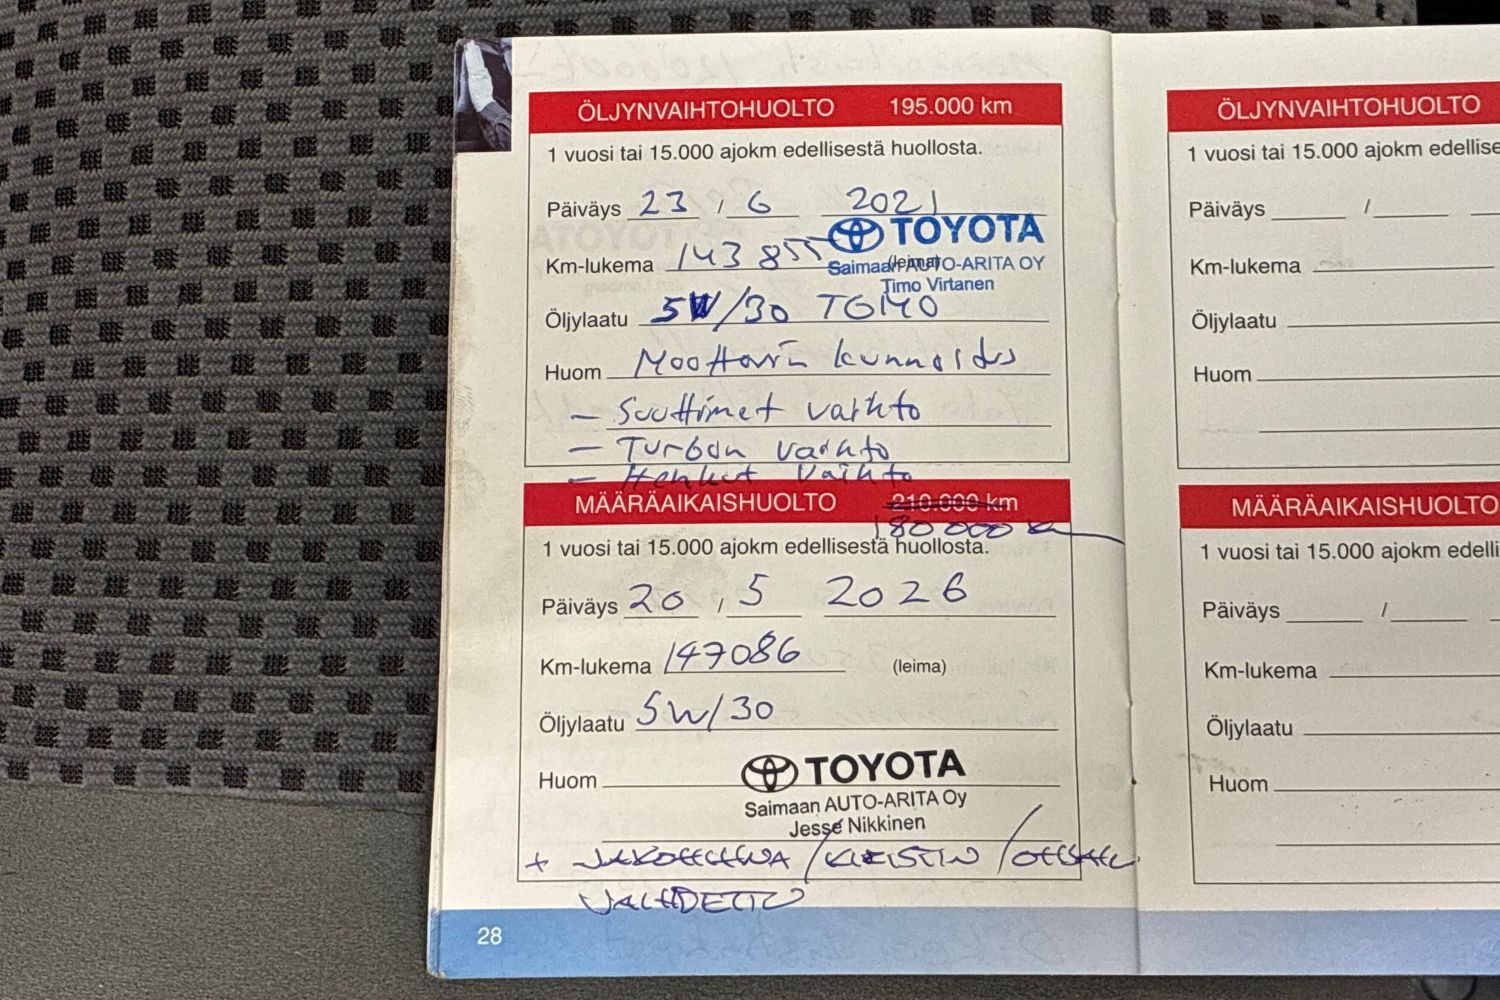 ÖLJYNVAIHTOHUOLTO 195.000 km
1 vuosi tai 15.000 ajokm edellisestä huollosta.
Päiväys 23 / 6 2021
TOYOTA
Km-lukema 143 855 (leima)
Saimaan AUTO-ARITA OY
Timo Virtanen
Öljylaatu 5W/30 TGMO
Huom Moottorin kunnostus
- Suuttimet vaihto
- Turbon vaihto
- Hehkut vaihto
MÄÄRÄAIKAISHUOLTO 210.000 km
180 000 km
1 vuosi tai 15.000 ajokm edellisestä huollosta.
Päiväys 20 / 5 2026
Km-lukema 147086 (leima)
Öljylaatu 5W/30
Huom
TOYOTA
Saimaan AUTO-ARITA Oy
Jesse Nikkinen
+ JAKOHIHNA / KIRISTIN / OHJAUS
VAIHDETTU
28
ÖLJYNVAIHTOHUOLTO
1 vuosi tai 15.000 ajokm edellise
Päiväys /
Km-lukema
Öljylaatu
Huom
MÄÄRÄAIKAISHUOLTO
1 vuosi tai 15.000 ajokm edelli
Päiväys /
Km-lukema
Öljylaatu
Huom